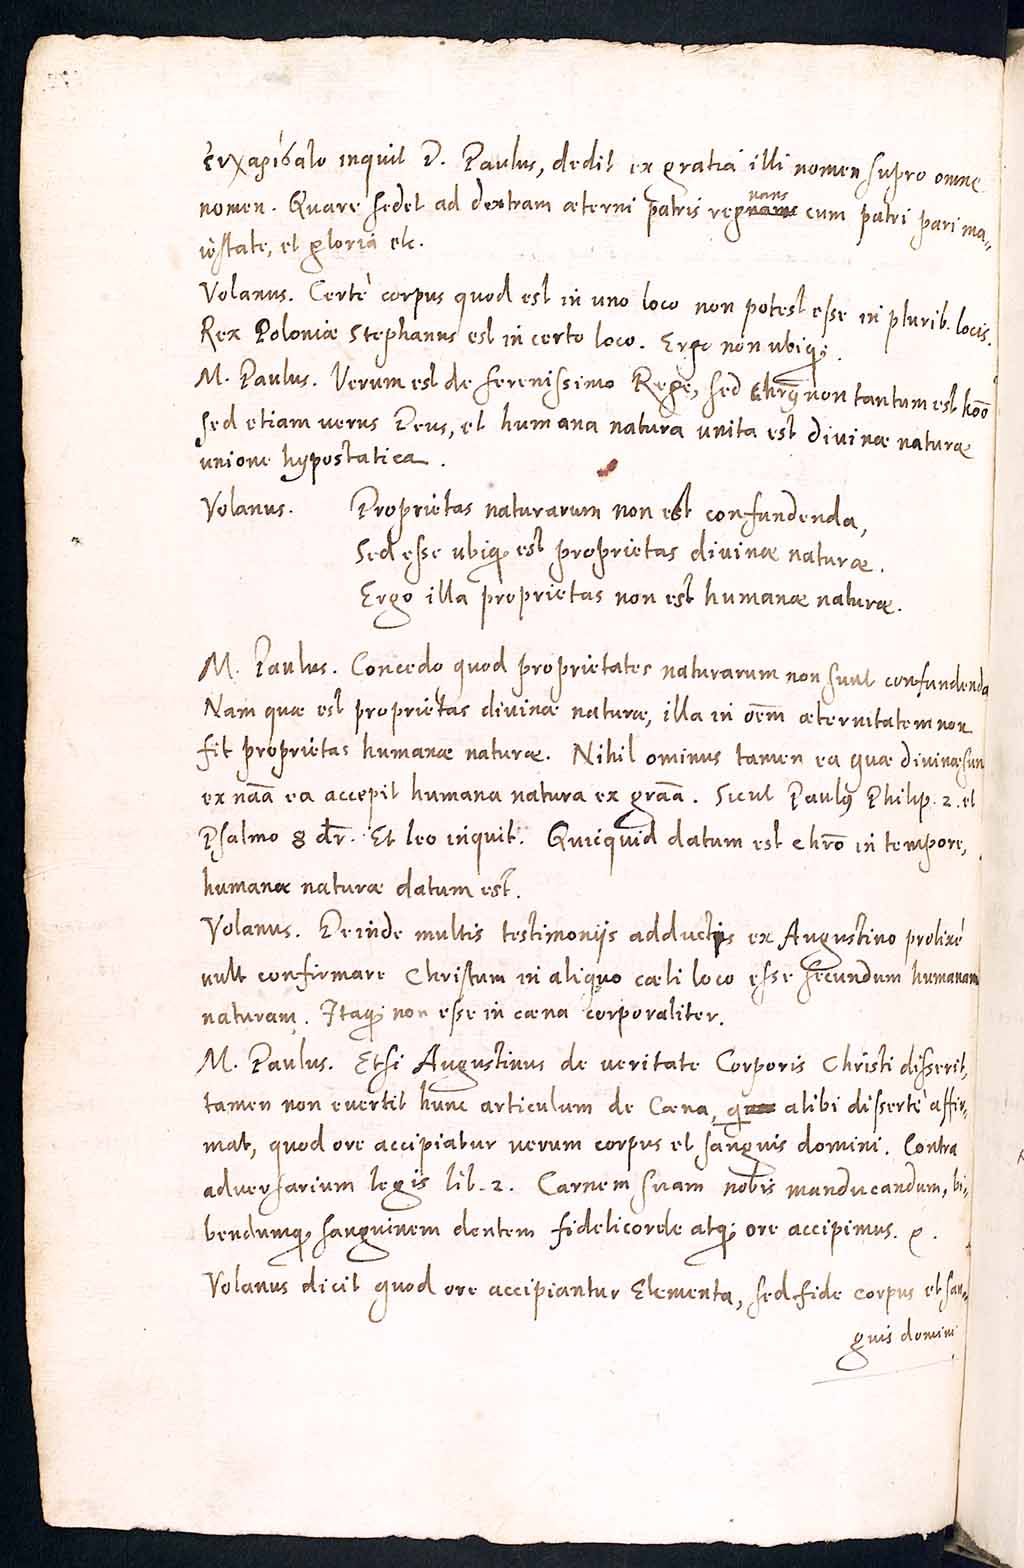 ἐχαρίσατο inquit D. Paulus, dedit ex gratiá illi nomen supro omne
nomen. Quare sedet ad dextram æterni patris regnans cum patri pari ma„
iestate, et gloriá etc.
Volanus. Certè corpus quod est in uno loco non potest esse in plurib. locis.
Rex Poloniæ Stephanus est in certo loco. Ergo non ubiq;.
M. Paulus. Verum est de serenissimo Rege, sed Chrꝰ non tantum est hōō
sed etiam verus Deus, et humana natura unita est divinæ naturæ
unione hypostatica.
Volanus. Proprietas naturarum non est confundenda,
Sed esse ubiq; est proprietas divinæ naturæ.
Ergo illa proprietas non est humanæ naturæ.
M. Paulus. Concedo quod proprietates naturarum non sunt confundendæ
Nam quæ est proprietas divinæ naturæ, illa in oēm æternitatem non
fit proprietas humanæ naturæ. Nihil ominus tamen ea quæ divinæ sun
ex nāā ea accepit humana natura ex grāā. Sicut Paulꝰ Philip. 2. et
Psalmo 8 dr̄. Et leo inquit. Quicquid datum est Chrō in tempore,
humanæ naturæ datum est.
Volanus. Deinde multis testimonijs adductis ex Augustino prolixé
vult confirmare Christum in aliquo cæli loco esse secundum humanam
naturam. Itaq; non esse in cæna corporaliter.
M. Paulus. Etsi Augustinus de veritate Corporis Christi disserit,
tamen non evertit hunc articulum de Cæna, q alibi dissertè affir„
mat, quod ore accipiatur verum corpus et sanguis domini. Contra
adversarium legis lib. 2. Carnem suam nobis manducandum, bi„
bendumq; sanguinem dentem fideli corde atq; ore accipimus.
Volanus dicit quod ore accipiantur Elementa, sed fide corpus et san„
guis domini